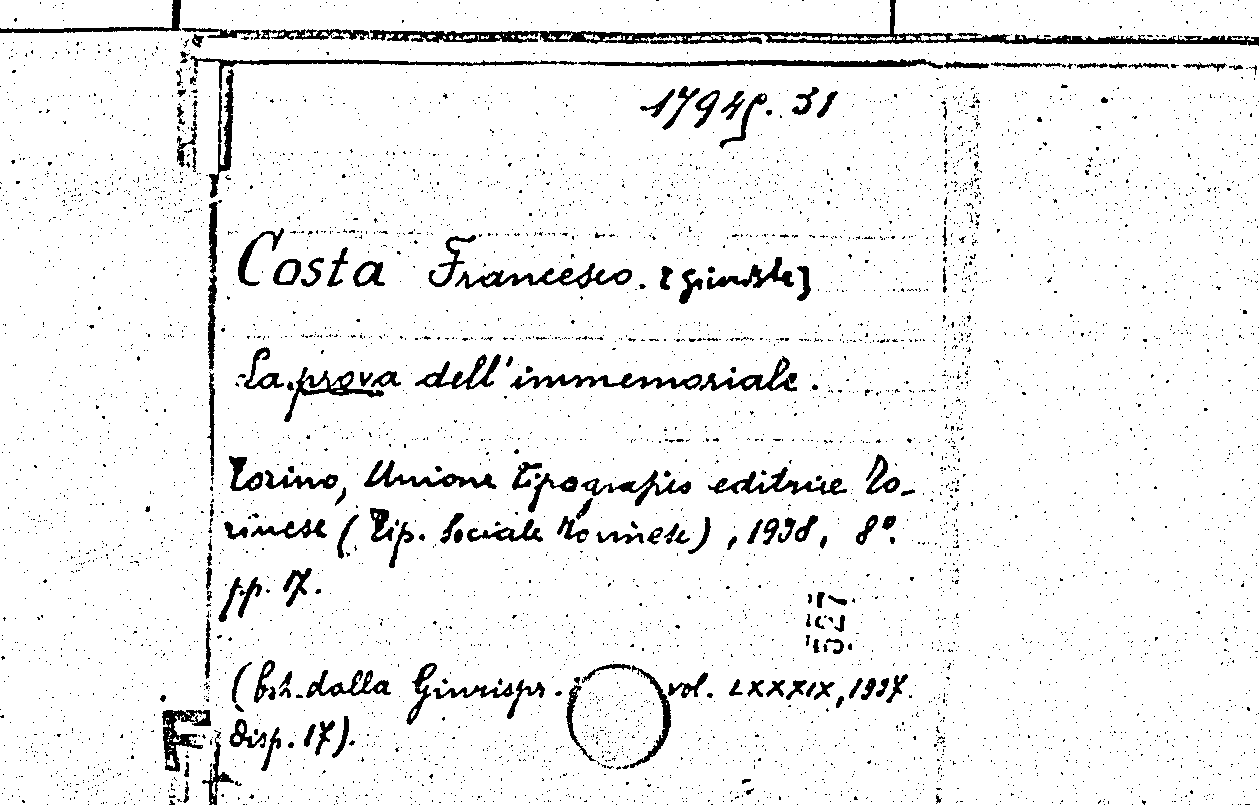 1794ρ. 31
Costa Francesco. [giurista]
La prova dell'immemoriale.
Torino, Unione tipografico editrice To-
rinese (Tip. Sociale Torinese), 1938, 8°.
pp. 17.
527
(Estr. dalla Giurispr. vol. LXXXIX, 1937.
disp. 17).
F